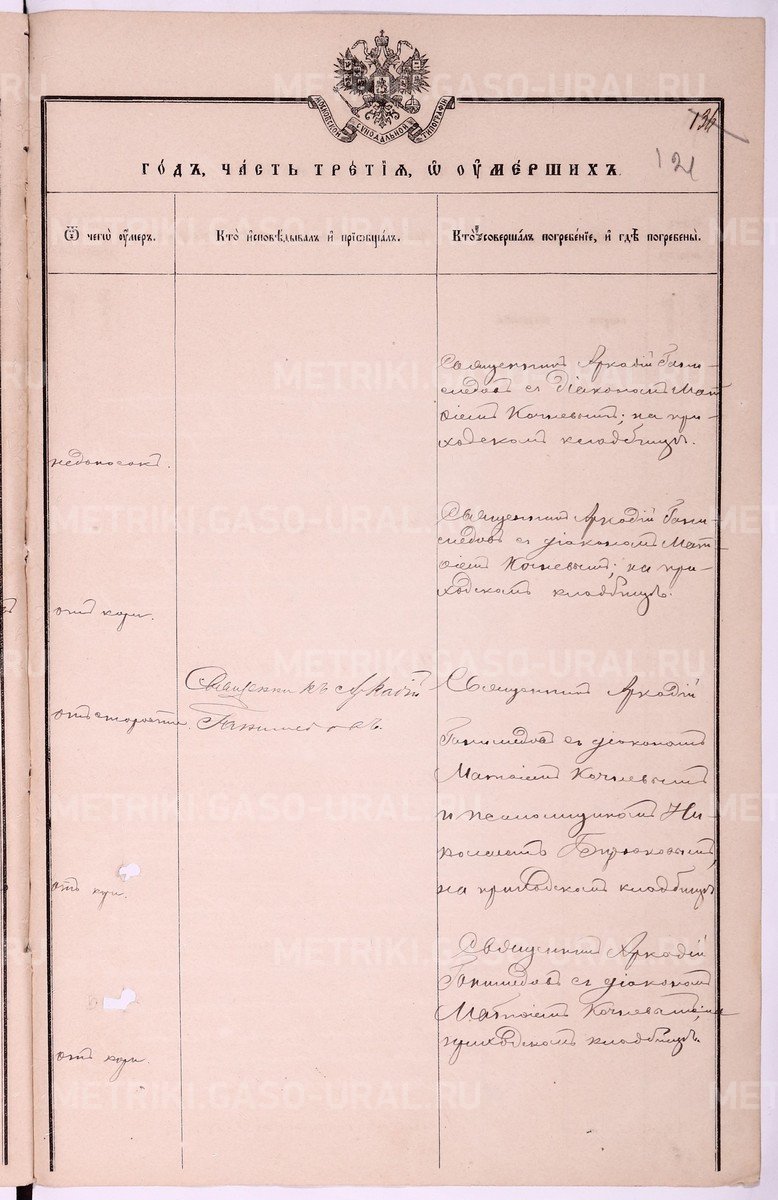 МОСКОВСКОЙ СѴНОДАЛЬНОЙ ТИПОГРАФІИ
136
121
ГО́ДЪ, ЧА́СТЬ ТРЕ́ТІѦ, Ѽ ОУМЕ́РШИХЪ.
Ѿ чегѡ̀ оу́меръ.
Кто̀ и҆сповѣ́дывалъ и҆ прїѡбща́лъ.
Кто̀ соверша́лъ погребе́нїе, и҆ гдѣ̀ погребены̀.
Священникъ Аркадій Гани-
медовъ съ діакономъ Мат-
ѳіемъ Кочневымъ; на при-
ходскомъ кладбищѣ.
недоносокъ.
Священникъ Аркадій Гани-
медовъ съ діакономъ Мат-
ѳіемъ Кочневымъ; на при-
ходскомъ кладбищѣ.
отъ кори.
Священникъ Аркадій
Ганимедовъ.
отъ старости.
Священникъ Аркадій
Ганимедовъ съ діакономъ
Матѳіемъ Кочневымъ
и псаломщикомъ Ни-
колаемъ Бирюковымъ,
на приходскомъ кладбищѣ
отъ кори.
Священникъ Аркадій
Ганимедовъ съ діакономъ
Матѳіемъ Кочневымъ; на
приходскомъ кладбищѣ.
отъ кори.
METRIKI.GASO-URAL.RU